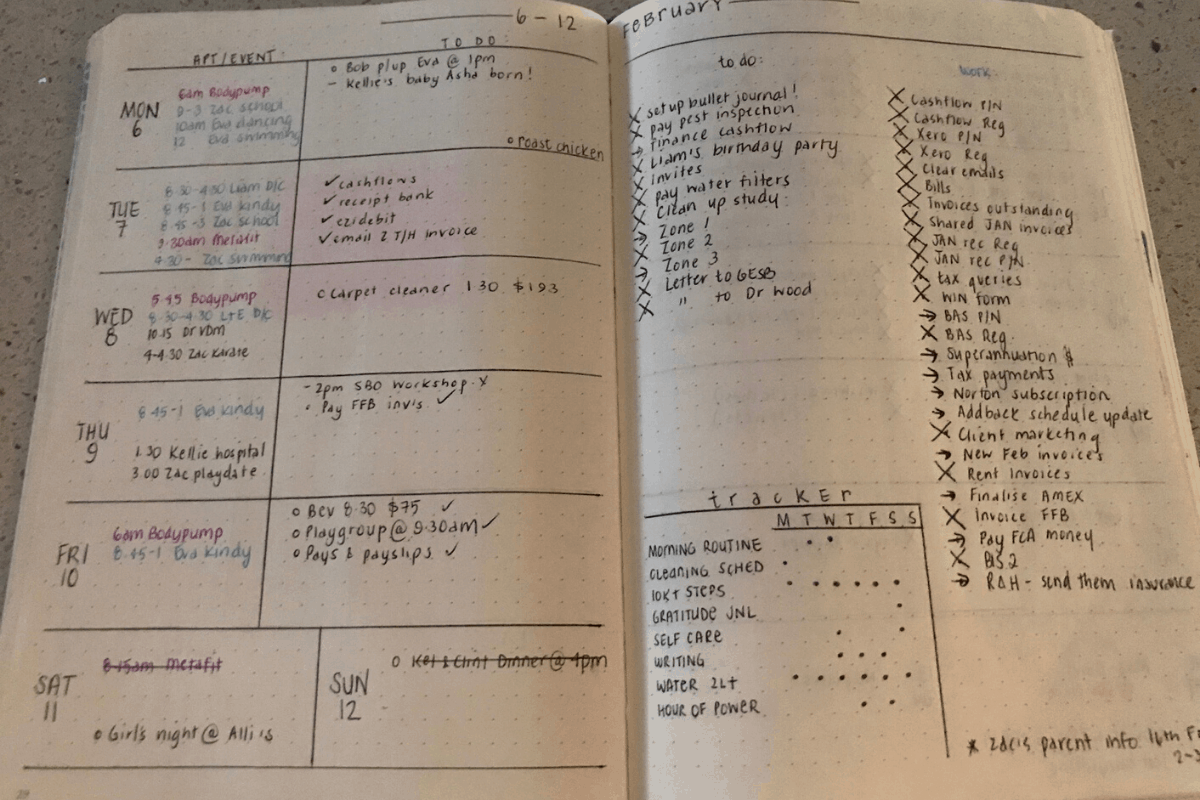 6 - 12
APT/EVENT:
TO DO:
MON
6
6am Bodypump
9-3 Zac school
10am Eva dancing
12 Eva swimming
o Bob p/up Eva @ 1pm
- Kellie's baby Asha born!
o roast chicken
TUE
7
8.30-4.30 Liam D/C
8.45-1 Eva kindy
8.45-3 Zac school
9.30am Metafit
4.30- Zac swimming
✓ cashflows
✓ receipt bank
✓ ezidebit
✓ email 2 T/H invoice
WED
8
5.45 Bodypump
8.30-4.30 L+E D/C
10.15 Dr VDM
4-4.30 Zac Karate
o Carpet cleaner 1.30 $193
THU
9
8.45-1 Eva kindy
1.30 Kellie hospital
3.00 Zac playdate
- 2pm SBO Workshop X
o Pay FFB invis ✓
FRI
10
6am Bodypump
8.45-1 Eva kindy
o Bev 8.30 $75 ✓
o Playgroup @ 9.30am ✓
o Pays & payslips ✓
SAT
11
8.15am Metafit
o Girl's night @ Alli's
SUN
12
o Kel & Clint Dinner @ 4pm
February
to do:
X set up bullet journal!
X pay pest inspection
→ finance cashflow
X Liam's birthday party
X invites
X pay water filters
X Clean up study:
→ Zone 1
X Zone 2
→ Zone 3
X Letter to GESB
X " to Dr Wood
WORK:
X Cashflow P/N
X Cashflow Reg
X Xero P/N
X Xero Reg
X Clear emails
X Bills
X Invoices outstanding
X Shared JAN invoices
X JAN rec Reg
X JAN rec P/N
X tax queries
X WIN form
→ BAS P/N
X BAS Reg
→ Superannuation $
→ Tax payments
→ Norton subscription
→ Addback schedule update
X Client marketing
→ New Feb invoices
X Rent Invoices
→ Finalise AMEX
X Invoice FFB
→ Pay FCA money
X
→ RAH - send them insurance
tracker
M T W T F S S
MORNING ROUTINE
CLEANING SCHED
10KT STEPS
GRATITUDE JNL
SELF CARE
WRITING
WATER 2LT
HOUR OF POWER
* Zac's parent info 16th F